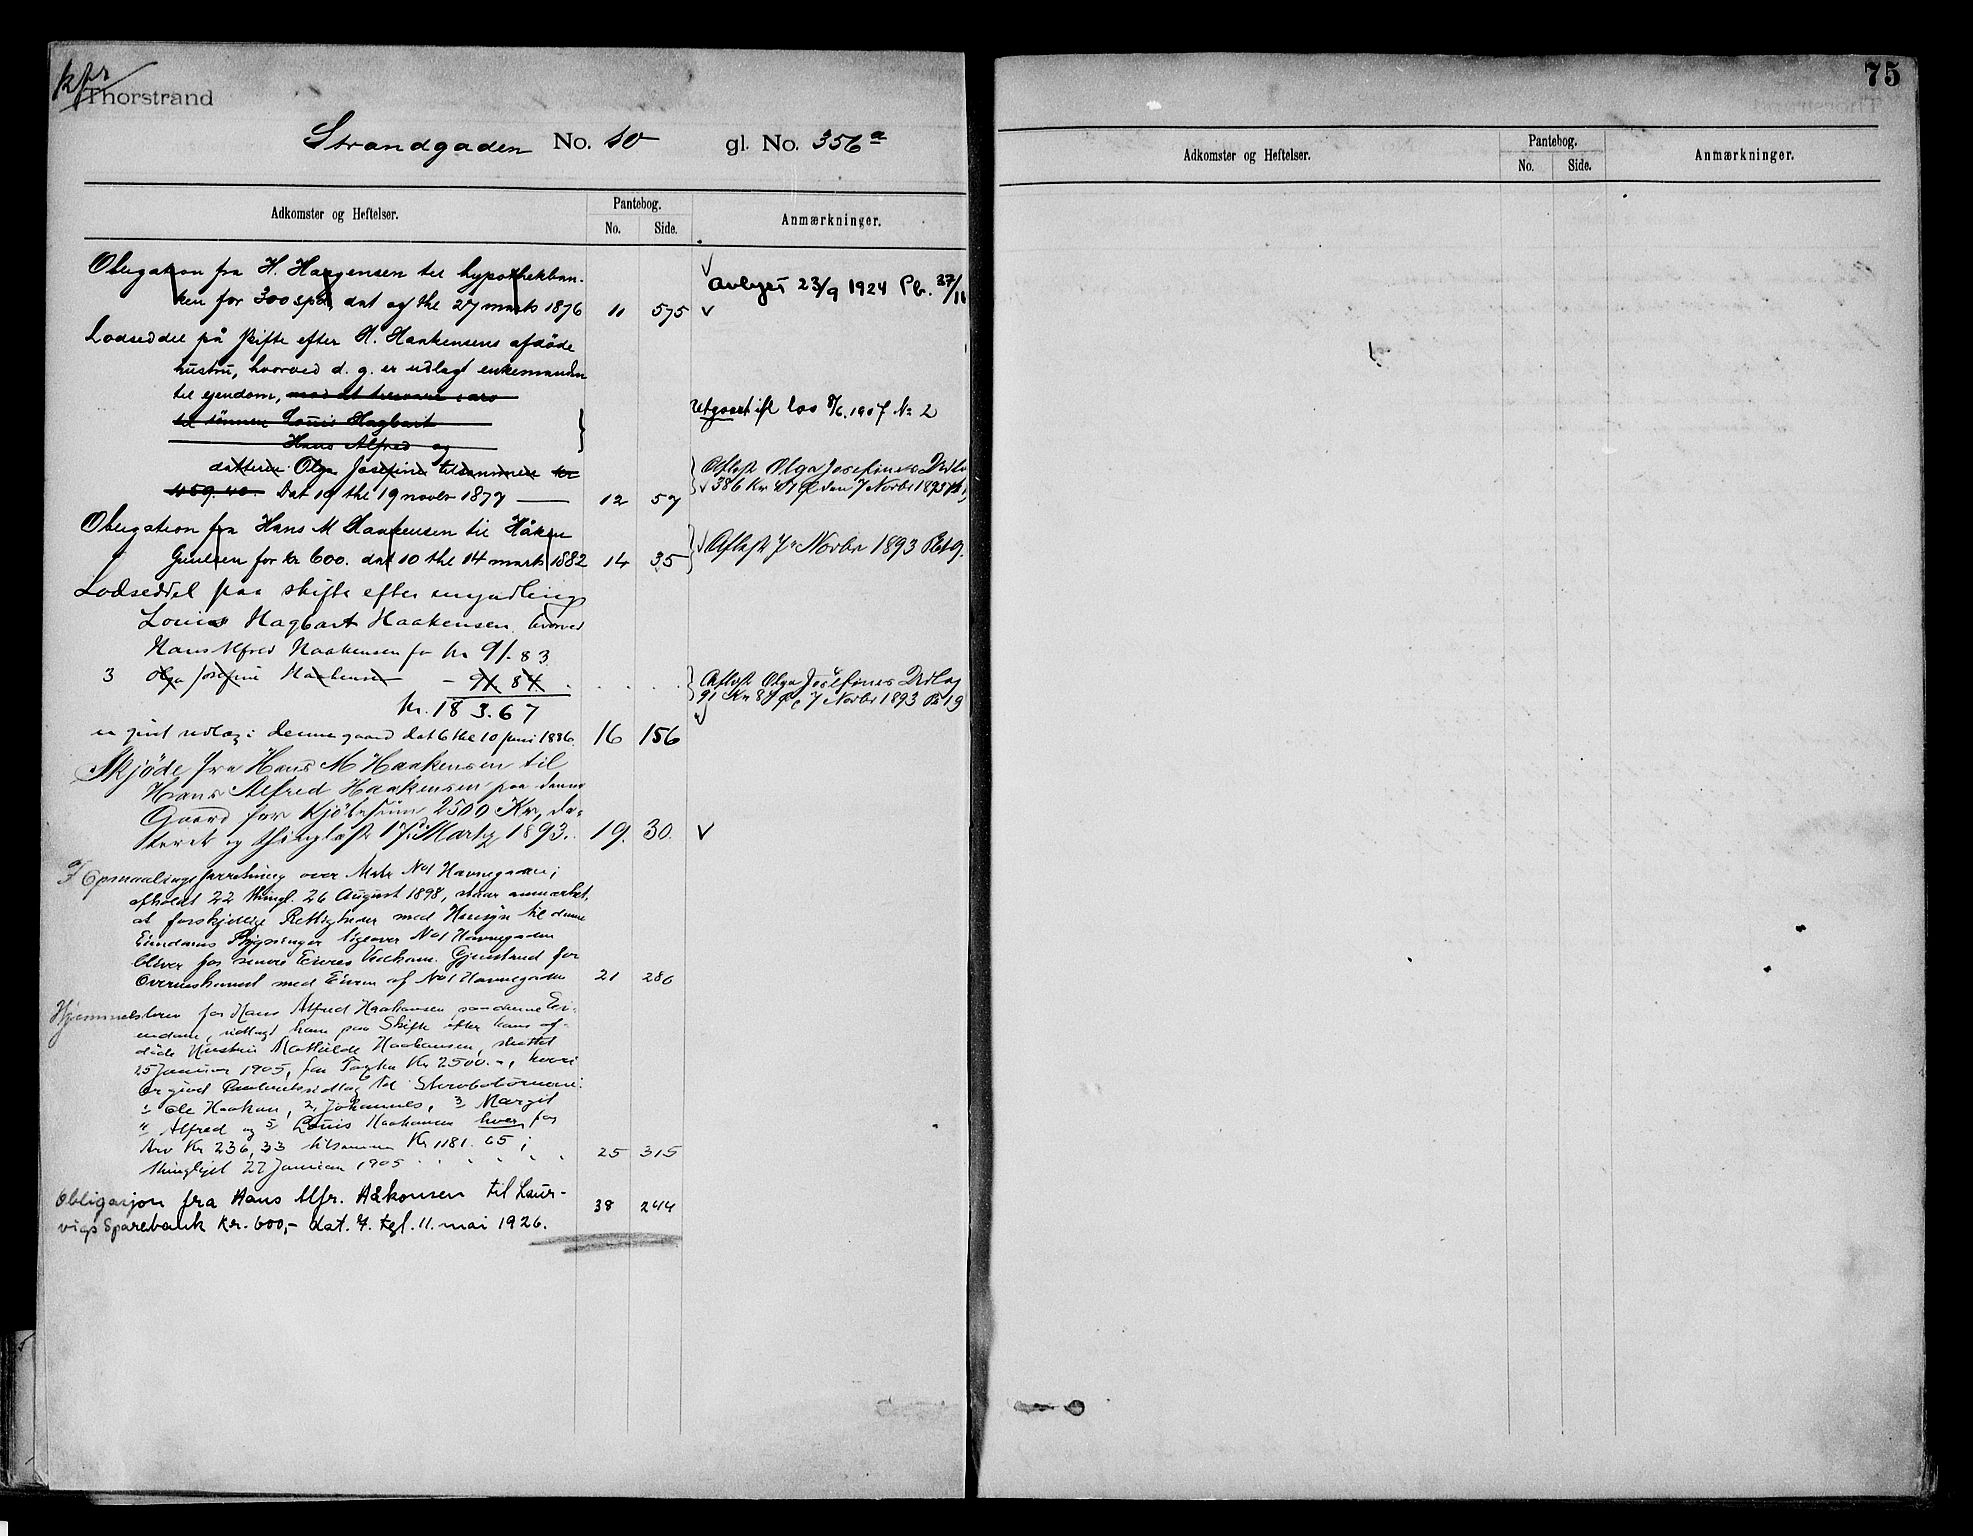 kfr
Thorstrand
Strandgaden No. 10 gl. No. 356 a
Adkomster og Heftelser. Pantebog. No. Side. Anmærkninger.
Obligation fra H. Haagensen til hypothekban-
ken for 300 spd. dat og thl 27 marts 1876 11 575 ✓ avlyst 23/9 1924 Pb. 37/11
Lodseddel på skifte efter H. Haakensens afdöde
hustru, hvorved d. g. er udlagt enkemanden
til ejendom, mod at tilsvare arv
til sönnen Louis Hagbart
Hans Alfred og Utgaaet ifl lov 8/6.1907 No 2
datteren Olga Josefine tilsammen kr
459.40. Dat 19 thl 19 novbr 1877 12 57
Aflæst Olga Josefines Udlæg
✓ 386 Kr 87 Ø den 7 Novbr 1893
Obligation fra Hans M Haakensen til Håken
Gunelsen for kr 600. dat 10 thl 14 marts 1882 14 35 ✓ Aflæst 7de Novbr 1893 Pb 19.
Lodseddel paa skifte efter umyndling
Louis Hagbart Haakensen hvorved
Hans Alfred Haakensen for kr 91.83
3 Olga Josefine Haakensen - 91 84
Aflæst Olga Josefines Udlæg
91 Kr 84 Ø 7 Novbr 1893 Pb 19
kr. 183.67
er givet udlæg i denne gaard dat 6 thl 10 juni 1886. 16 156
Skjöde fra Hans M Haakensen til
Hans Alfred Haakensen paa denne
Gaard for Kjöbesum 2500 Kr, da-
teret og thinglæst 17de Marts 1893. 19. 30. ✓
I Opmaalingsforretning over Matr No 1 Havnegaden;
afholdt 22 thingl. 26 August 1898, staar anmærket,
at forskjellige Rettigheder med Hensyn til denne
Eiendoms Bygninger ligeover No 1 Havnegaden
bliver for senere Eieres Vedkom. Gjenstand for
Overenskomst med Eieren af No 1 Havnegaden 21 286
Hjemmelsbrev for Hans Alfred Haakensen paa denne Ei-
endom, udlagt ham paa Skifte efter hans af-
döde Hustru Mathilde Haakensen, sluttet
25 Januar 1905, for Taxten Kr 2500.-, hvori
er givet Panteretsudlæg til Stervbobörnene:
1, Ole Haakon, 2, Johannes, 3, Margit
4, Alfred og 5, Louis Haakensen hver for
Arv Kr 236,33 tilsammen Kr 1181.65;
thinglyst 27 Januar 1905 25 315
Obligasjon fra Hans Alfr. Håkonsen til Laur-
vigs Sparebank kr. 600,- dat. 7. tgl. 11. mai 1926. 38 244
75
Adkomster og Heftelser. Pantebog. No. Side. Anmærkninger.